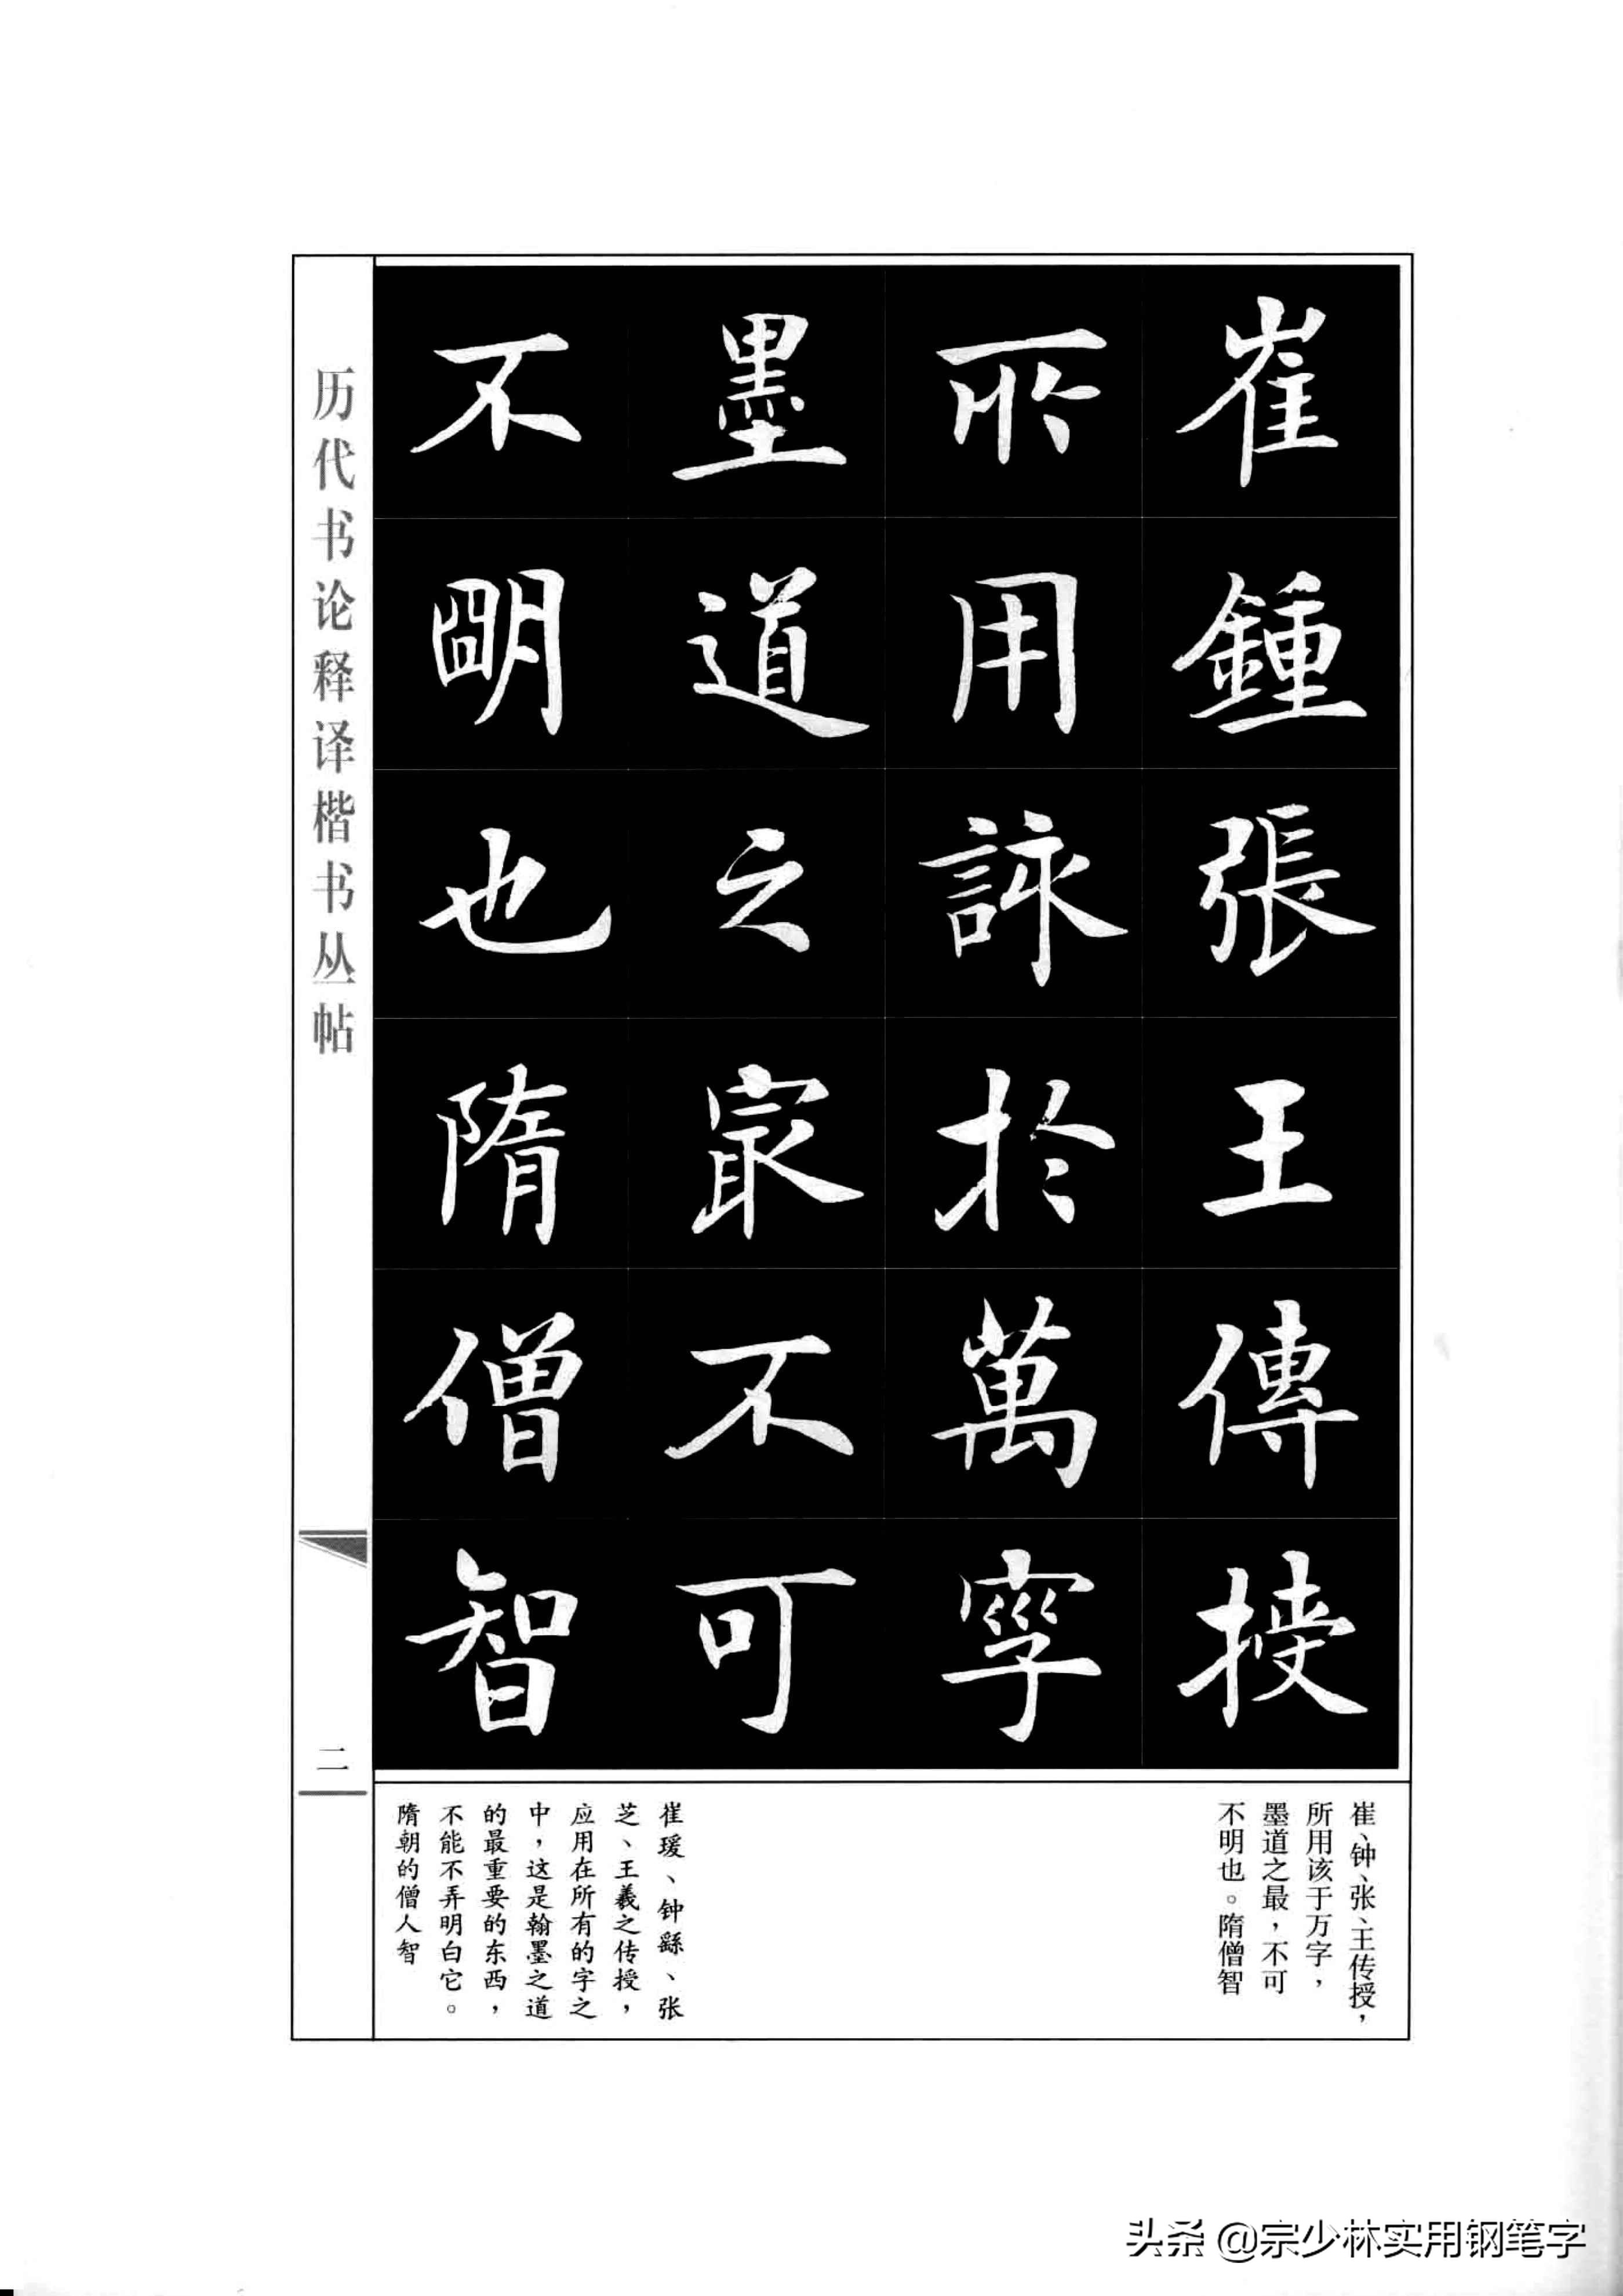 崔鍾張王傳授
所用詠於萬字
墨道之最不可
不明也隋僧智
崔、钟、张、王传授，
所用该于万字，
墨道之最，不可
不明也。隋僧智
崔瑗、钟繇、张
芝、王羲之传授，
应用在所有的字之
中，这是翰墨之道
的最重要的东西，
不能不弄明白它。
隋朝的僧人智
历代书论释译楷书丛帖
二
头条 @宗少林实用钢笔字